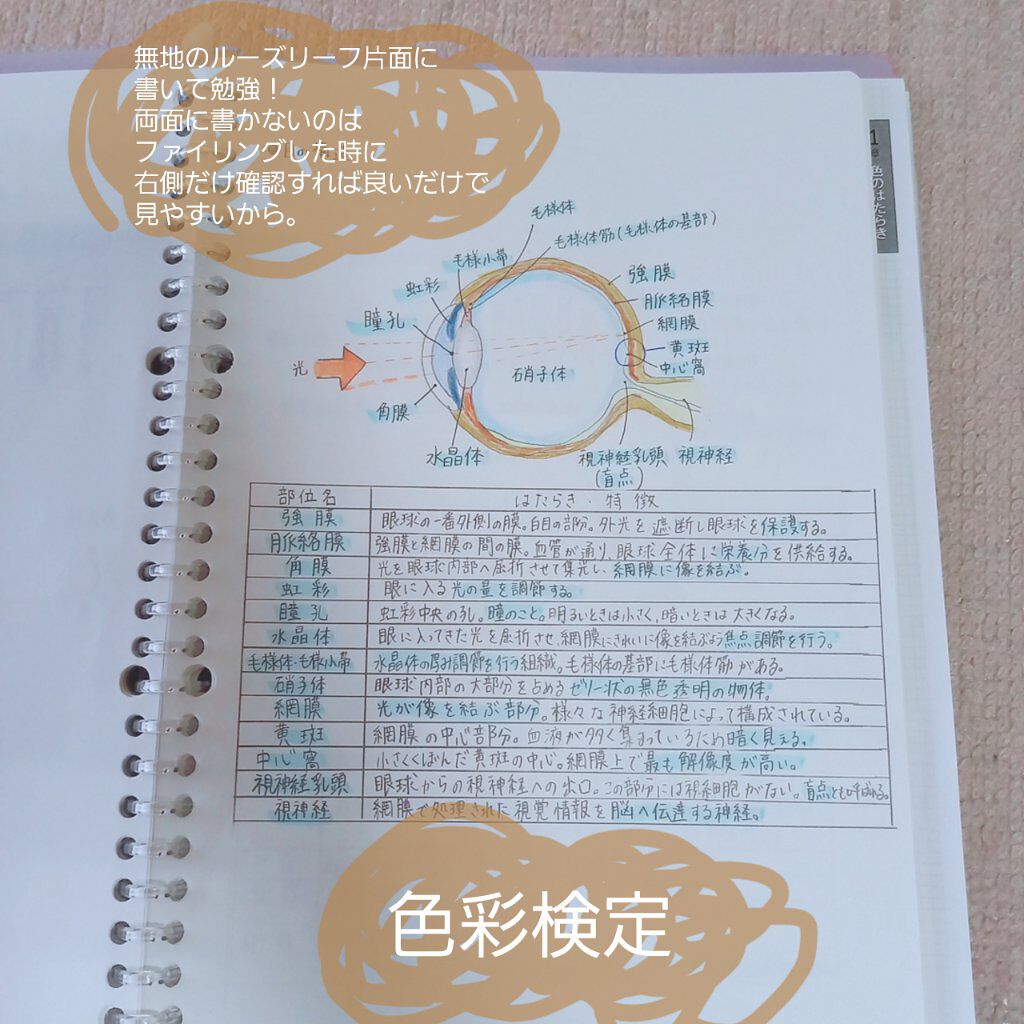 無地のルーズリーフ片面に
書いて勉強！
両面に書かないのは
ファイリングした時に
右側だけ確認すれば良いだけで
見やすいから。
1
章
色のはたらき
毛様体
毛様体筋(毛様体の基部)
毛様小帯
虹彩
瞳孔
光
角膜
水晶体
硝子体
強膜
脈絡膜
網膜
黄斑
中心窩
視神経乳頭
(盲点)
視神経
部位名 はたらき・特徴
強膜 眼球の一番外側の膜。白目の部分。外光を遮断し眼球を保護する。
脈絡膜 強膜と網膜の間の膜。血管が通り、眼球全体に栄養分を供給する。
角膜 光を眼球内部へ屈折させて集光し、網膜に像を結ぶ。
虹彩 眼に入る光の量を調節する。
瞳孔 虹彩中央の孔。瞳のこと。明るいときは小さく、暗いときは大きくなる。
水晶体 眼に入ってきた光を屈折させ、網膜にきれいに像を結ぶよう焦点調節を行う。
毛様体・毛様小帯 水晶体の厚み調節を行う組織。毛様体の基部に毛様体筋がある。
硝子体 眼球内部の大部分を占めるゼリー状の無色透明の物体。
網膜 光が像を結ぶ部分。様々な神経細胞によって構成されている。
黄斑 網膜の中心部分。血液が多く集まっているため暗く見える。
中心窩 小さくくぼんだ黄斑の中心。網膜上で最も解像度が高い。
視神経乳頭 眼球からの視神経への出口。この部分には視細胞がない。盲点とも呼ばれる。
視神経 網膜で処理された視覚情報を脳へ伝達する神経。
色彩検定